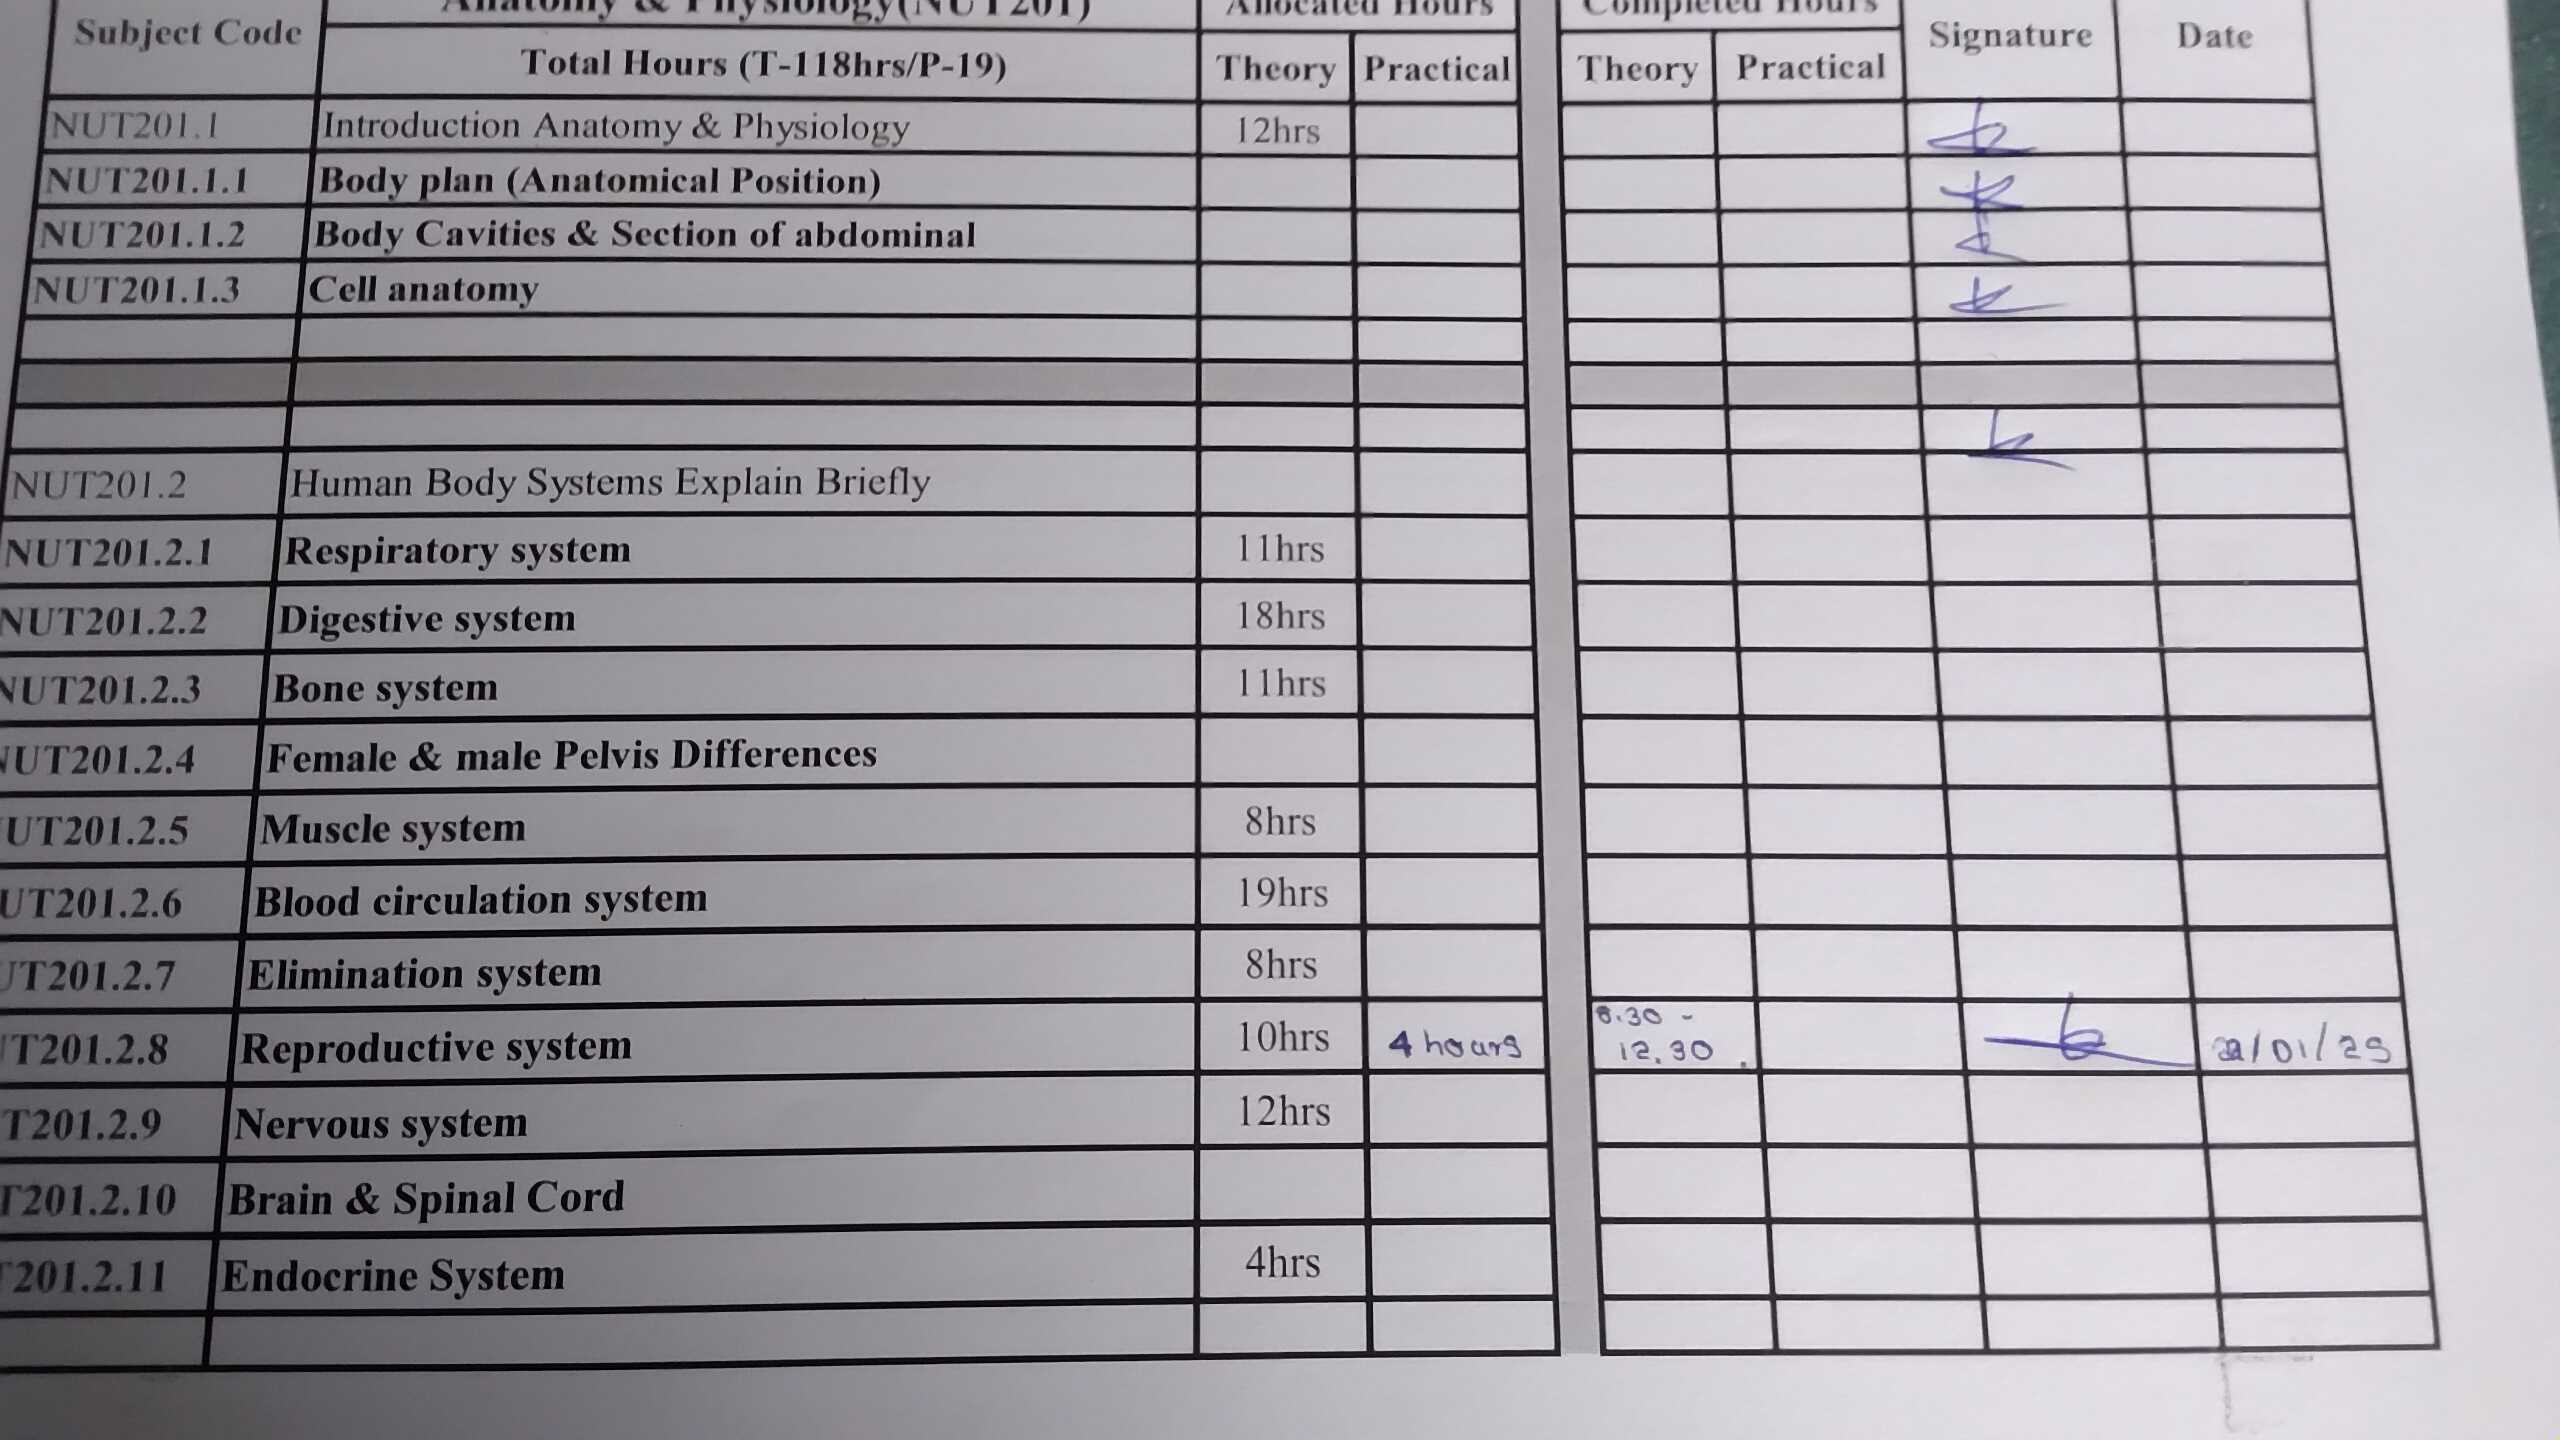 Subject Code Anatomy & Physiology(NUT201) Allocated Hours Completed Hours Signature Date
Total Hours (T-118hrs/P-19) Theory Practical Theory Practical
NUT201.1 Introduction Anatomy & Physiology 12hrs
NUT201.1.1 Body plan (Anatomical Position)
NUT201.1.2 Body Cavities & Section of abdominal
NUT201.1.3 Cell anatomy
NUT201.2 Human Body Systems Explain Briefly
NUT201.2.1 Respiratory system 11hrs
NUT201.2.2 Digestive system 18hrs
NUT201.2.3 Bone system 11hrs
NUT201.2.4 Female & male Pelvis Differences
UT201.2.5 Muscle system 8hrs
UT201.2.6 Blood circulation system 19hrs
UT201.2.7 Elimination system 8hrs
T201.2.8 Reproductive system 10hrs 4 hours 8.30 - 12.30
T201.2.9 Nervous system 12hrs
T201.2.10 Brain & Spinal Cord
T201.2.11 Endocrine System 4hrs